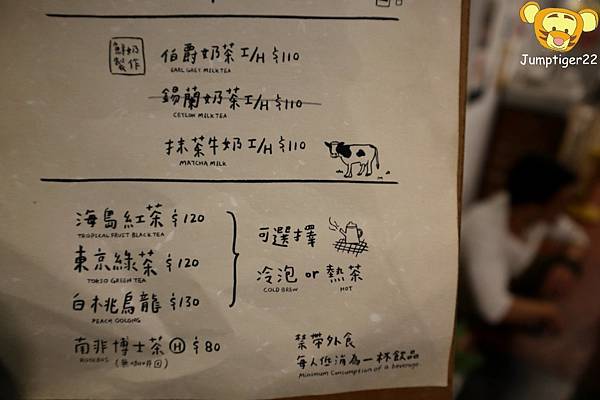 Jumptiger22
鮮奶製作
伯爵奶茶 I/H $110
EARL GREY MILK TEA
錫蘭奶茶 I/H $110
CEYLON MILK TEA
抹茶牛奶 I/H $110
MATCHA MILK
海島紅茶 $120
TROPICAL FRUIT BLACK TEA
東京綠茶 $120
TOKYO GREEN TEA
白桃烏龍 $130
PEACH OOLONG
可選擇
冷泡 or 熱茶
COLD BREW HOT
南非博士茶 H $80
ROOIBOS (無咖啡因)
禁帶外食
每人低消為一杯飲品
Minimum Consumption of a beverage